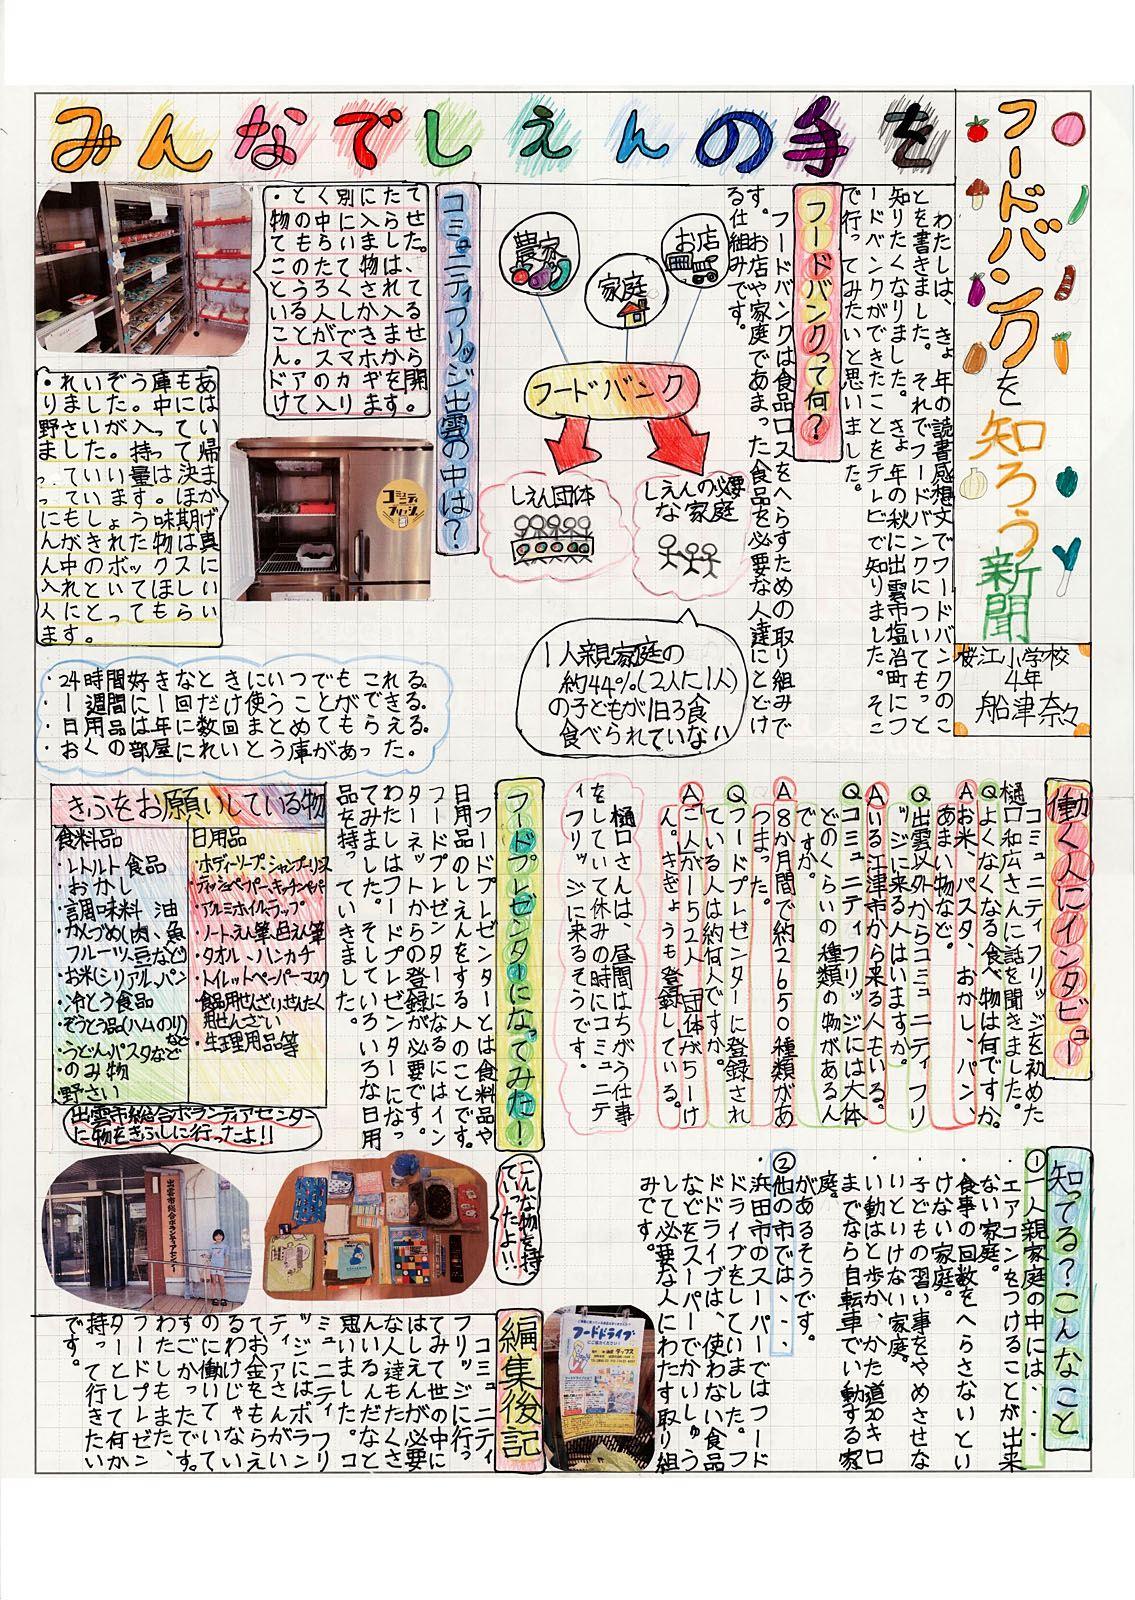 みんなでしえんの手を
フードバンクを知ろう新聞
桜江小学校
4年
船津奈々
わたしは、きょ年の読書感想文でフードバンクのこ
とを書きました。それでフードバンクについてもっと
知りたくなりました。きょ年の秋に出雲市塩冶町にフ
ードバンクができたことをテレビで知りました。そこ
で行ってみたいと思いました。
フードバンクって何?
フードバンクは食品ロスをへらすための取り組みで
す。お店や家庭であまった食品を必要な人達にとどけ
る仕組みです。
農家
家庭
お店
フードバンク
しえん団体
しえんの必要
な家庭
1人親家庭の
約44%(2人に1人)
の子どもが1日3食
食べられていない
コミュニティフリッジ出雲の中は?
・とく別に入らせ
て
物の中に入ました。
てもらいました。
このたくさん
いろ人しかさわれ
ることができませ
ん。スマホから
ドアのカギを開
けて入ります。
・れいぞう庫もあ
りました。中には
野さいが入ってい
ました。持って帰
っていい量は決ま
っています。ほか
にもしょう味期げ
んがきれた物は真
ん中のボックスに
入れといてほしい
人にとってもらい
ます。
コミュニティ
フリッジ
・24時間好きなときにいつでもこれる。
・1週間に1回だけ使うことができる。
・日用品は年に数回まとめてもらえる。
・おくの部屋にれいとう庫があった。
働く人にインタビュー
コミュニティフリッジを初めた
樋口和広さんに話を聞きました。
Qよくなくなる食べ物は何ですか。
Aお米、パスタ、おかし、パン、
あまい物など。
Q出雲以外からコミュニティフリ
ッジに来る人はいますか。
Aいる江津市から来る人もいる。
Qコミュニティフリッジには大体
どのくらいの種類の物があるん
ですか。
A8か月間で約2650種類があ
つまった。
Qフードプレゼンターに登録され
ている人は約何人ですか。
A二人が152人 団体が55け
ん。きぎょうも登録している。
樋口さんは、昼間はちがう仕事
をしていて休みの時にコミュニテ
ィフリッジに来るそうです。
フードプレゼンターになってみた!
フードプレゼンターとは食料品や
日用品のしえんをする人のことです。
フードプレゼンターになるにはイン
ターネットからの登録が必要です。
わたしはフードプレゼンターになっ
てみました。そしていろいろな日用
品を持っていきました。
きふをお願いしている物
食料品
・レトルト食品
・おかし
・調味料 油
・かんづめ(肉、魚
フルーツ、豆など)
・お米(シリアル、パン
・冷とう食品
・ぞうとう品(ハムのり)
など
・うどんパスタなど
・のみ物
野さい
日用品
・ボディーソープ、シャンプーリンス
・ティッシュペーパー、キッチンペーパー
・アルミホイル、ラップ
・ノート、えん筆、色えん筆
・タオル、ハンカチ
・トイレットペーパー、マスク
・食品用せんざいせんたく
用せんざい
・生理用品等
出雲市総合ボランティアセンター
に物をきふしに行ったよ!!
出雲市総合ボランティアセンター
こんな物を持っ
ていったよ!!
知ってる?こんなこと
①一人親家庭の中には、、、
・エアコンをつけることが出来
ない家庭。
・食事の回数をへらさないとい
けない家庭。
・子どもの習い事をやめさせな
いといけない家庭。
・い動はと歩か、かた道20キロ
までなら自転車でい動する家
庭。
があるそうです。
②他の市では、、、
・浜田市のスーパーではフード
ドライブをしていました。フー
ドドライブは、使わない食品
などをスーパーでかいしゅう
して必要な人にわたす取り組
みです。
フードドライブ
編集後記
コミュニティ
フリッジに行っ
てみて世の中に
はしえんが必要
な人達もたくさ
んいるんだなと
思いました。コ
ミュニティフリ
ッジにはボラン
ティアさんがい
てお金をもらえ
るわけじゃない
のに働いていて
すごかったです。
わたしもまた、
フードプレゼン
ターとして何か
持って行きたい
です。